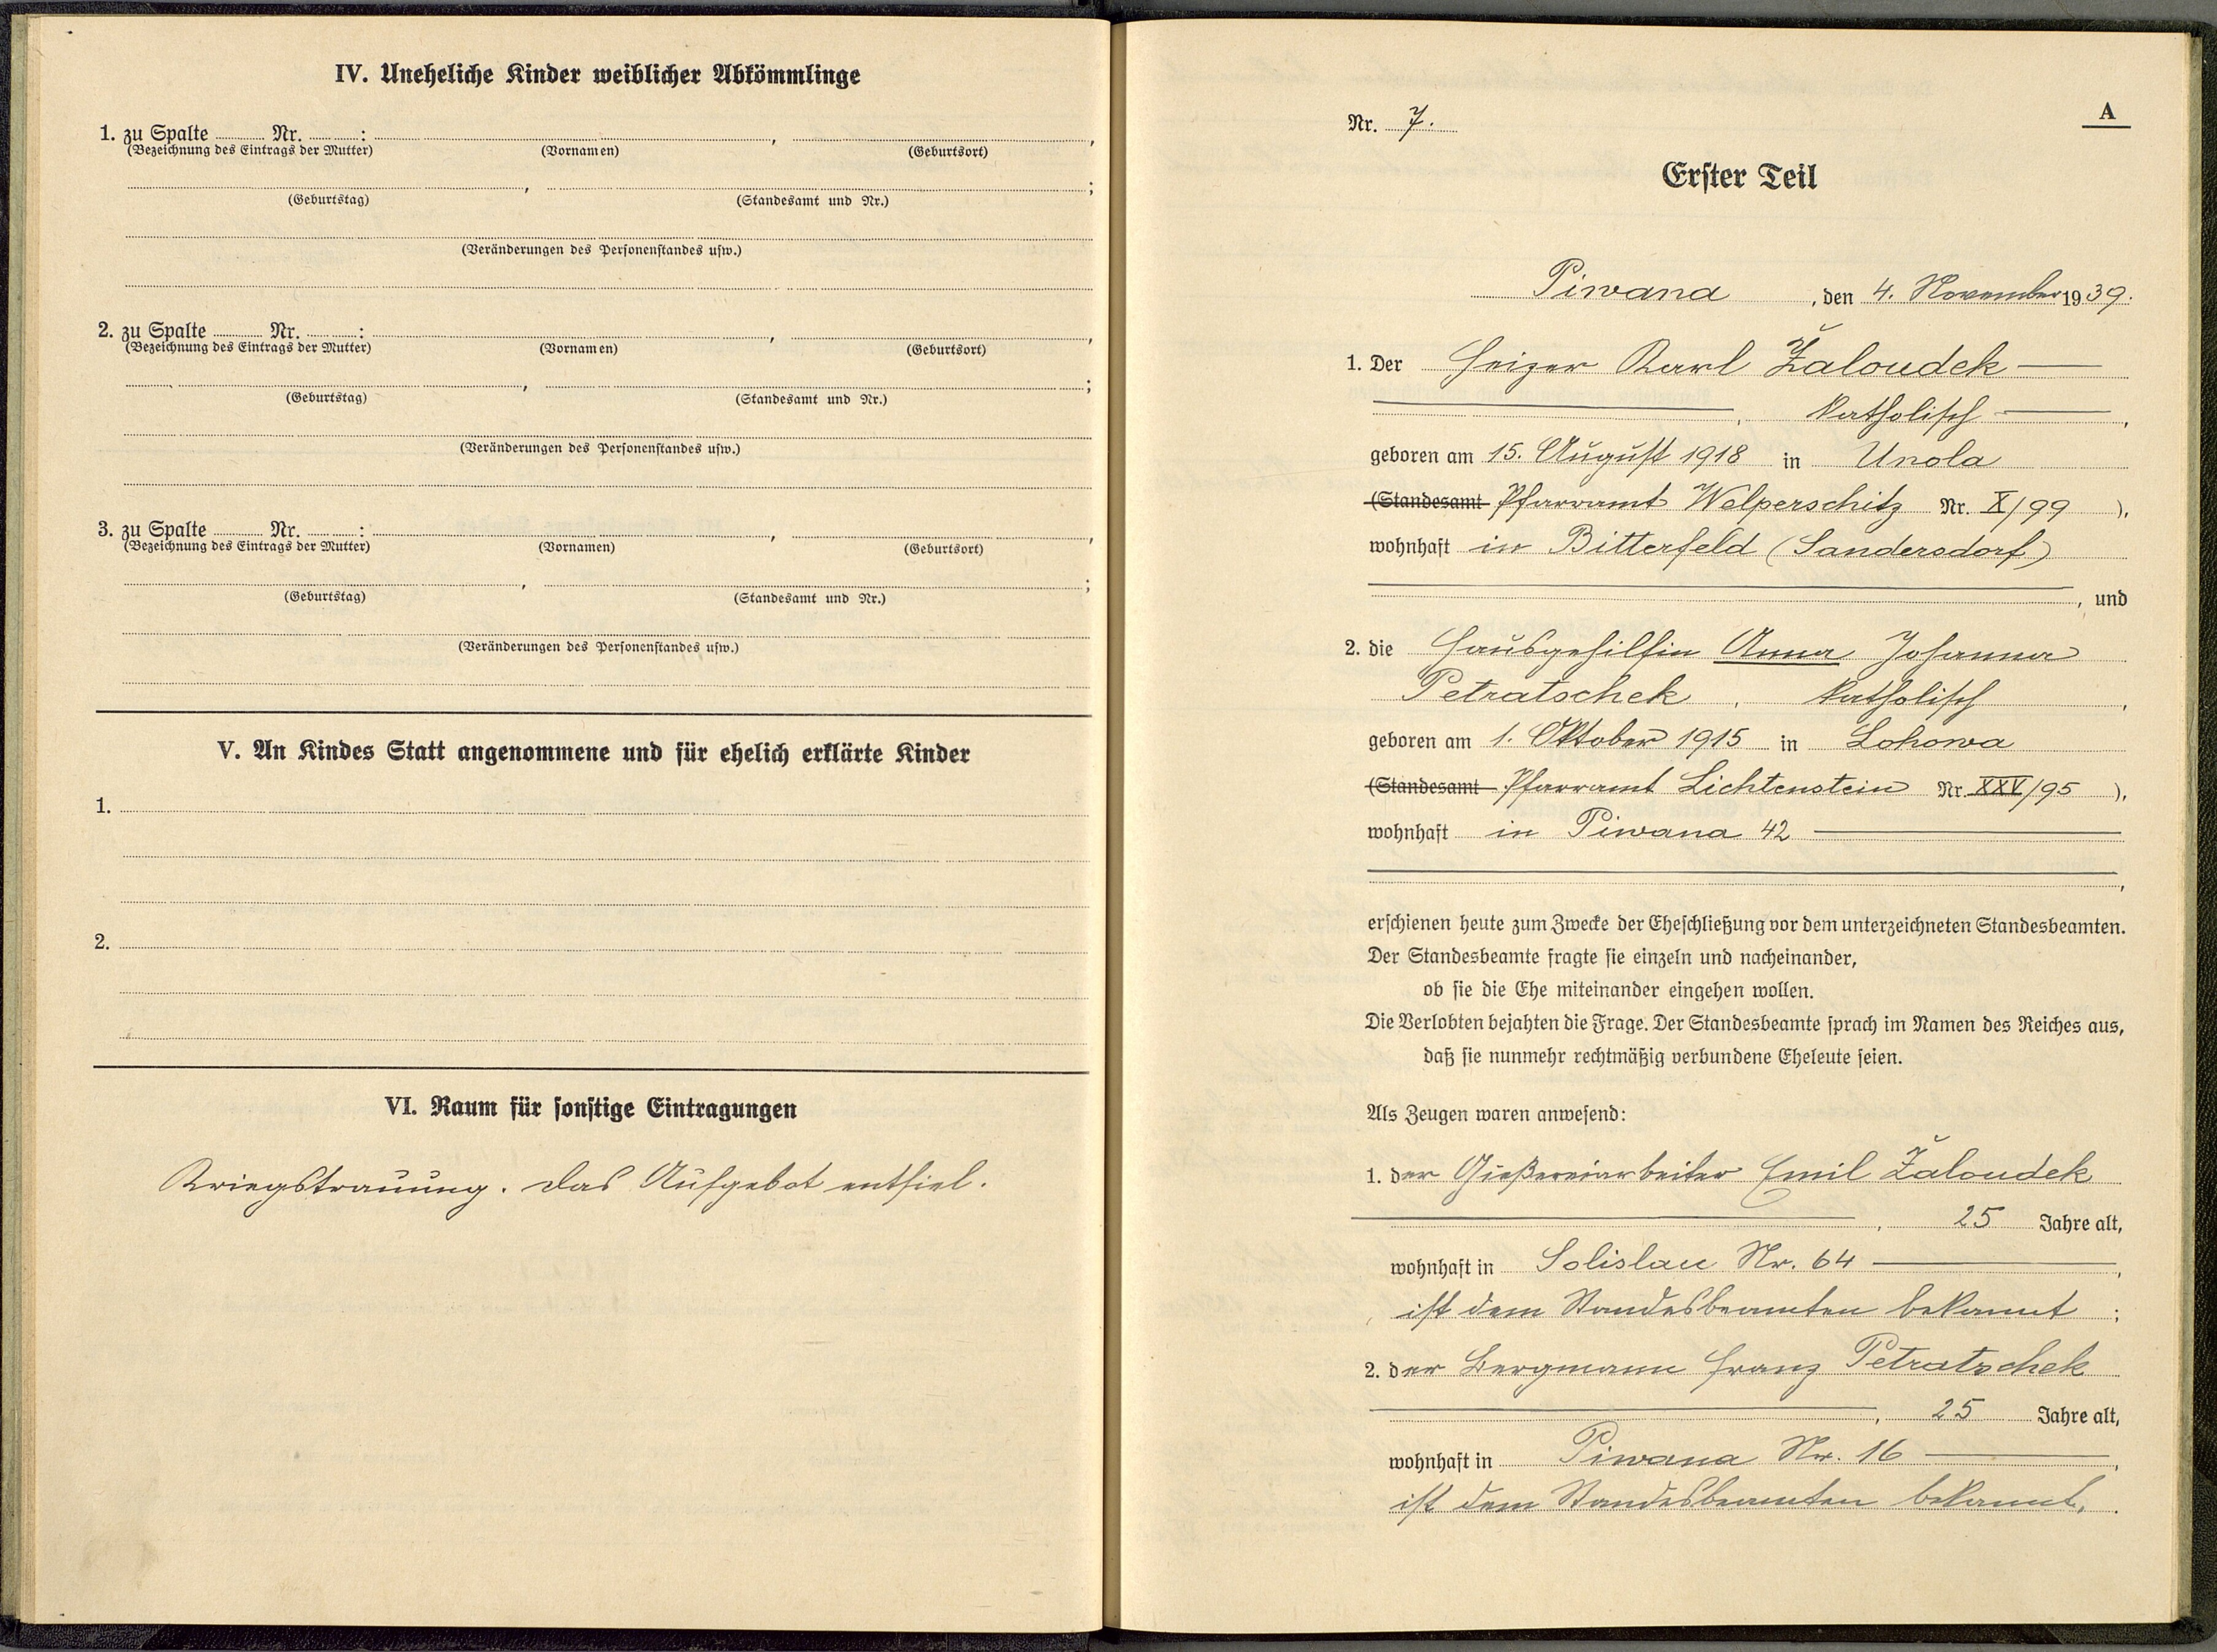 IV. Uneheliche Kinder weiblicher Abkömmlinge
1. zu Spalte ........ Nr. ........: ........, ........,
(Bezeichnung des Eintrags der Mutter) (Vornamen) (Geburtsort)
........, ........;
(Geburtstag) (Standesamt und Nr.)
(Veränderungen des Personenstandes usw.)
2. zu Spalte ........ Nr. ........: ........, ........,
(Bezeichnung des Eintrags der Mutter) (Vornamen) (Geburtsort)
........, ........;
(Geburtstag) (Standesamt und Nr.)
(Veränderungen des Personenstandes usw.)
3. zu Spalte ........ Nr. ........: ........, ........,
(Bezeichnung des Eintrags der Mutter) (Vornamen) (Geburtsort)
........, ........;
(Geburtstag) (Standesamt und Nr.)
(Veränderungen des Personenstandes usw.)
V. An Kindes Statt angenommene und für ehelich erklärte Kinder
1.
2.
VI. Raum für sonstige Eintragungen
Kriegstrauung. Das Aufgebot entfiel.
A
Nr. 7.
Erster Teil
Piwana, den 4. November 1939.
1. Der Heizer Karl Žaloudek
, katholisch,
geboren am 15. August 1918 in Unola
(Standesamt Pfarramt Welperschitz Nr. X/99 ),
wohnhaft in Bitterfeld (Sandersdorf)
, und
2. die Hausgehilfin Anna Johanna
Petratschek, katholisch,
geboren am 1. Oktober 1915 in Lohowa
(Standesamt Pfarramt Lichtenstein Nr. XXV/95 ),
wohnhaft in Piwana 42
,
erschienen heute zum Zwecke der Eheschließung vor dem unterzeichneten Standesbeamten.
Der Standesbeamte fragte sie einzeln und nacheinander,
ob sie die Ehe miteinander eingehen wollen.
Die Verlobten bejahten die Frage. Der Standesbeamte sprach im Namen des Reiches aus,
daß sie nunmehr rechtmäßig verbundene Eheleute seien.
Als Zeugen waren anwesend:
1. der Gießereiarbeiter Emil Žaloudek
, 25 Jahre alt,
wohnhaft in Solislau Nr. 64,
ist dem Standesbeamten bekannt;
2. der Bergmann Franz Petratschek
, 25 Jahre alt,
wohnhaft in Piwana Nr. 16,
ist dem Standesbeamten bekannt.